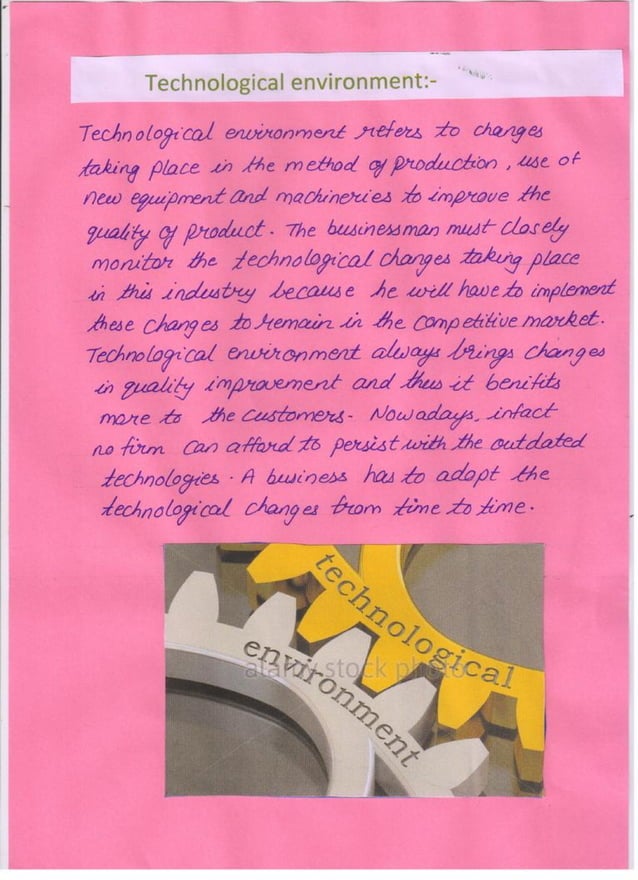 Technological environment:-
Technological environment refers to changes
taking place in the method of production, use of
new equipment and machineries to improve the
quality of product. The businessman must closely
monitor the technological changes taking place
in this industry because he will have to implement
these changes to remain in the competitive market.
Technological environment always brings changes
in quality improvement and thus it benifits
more to the customers. Nowadays, infact
no firm can afford to persist with the outdated
technologies. A business has to adopt the
technological changes from time to time.
technological
environment
alamy stock photo